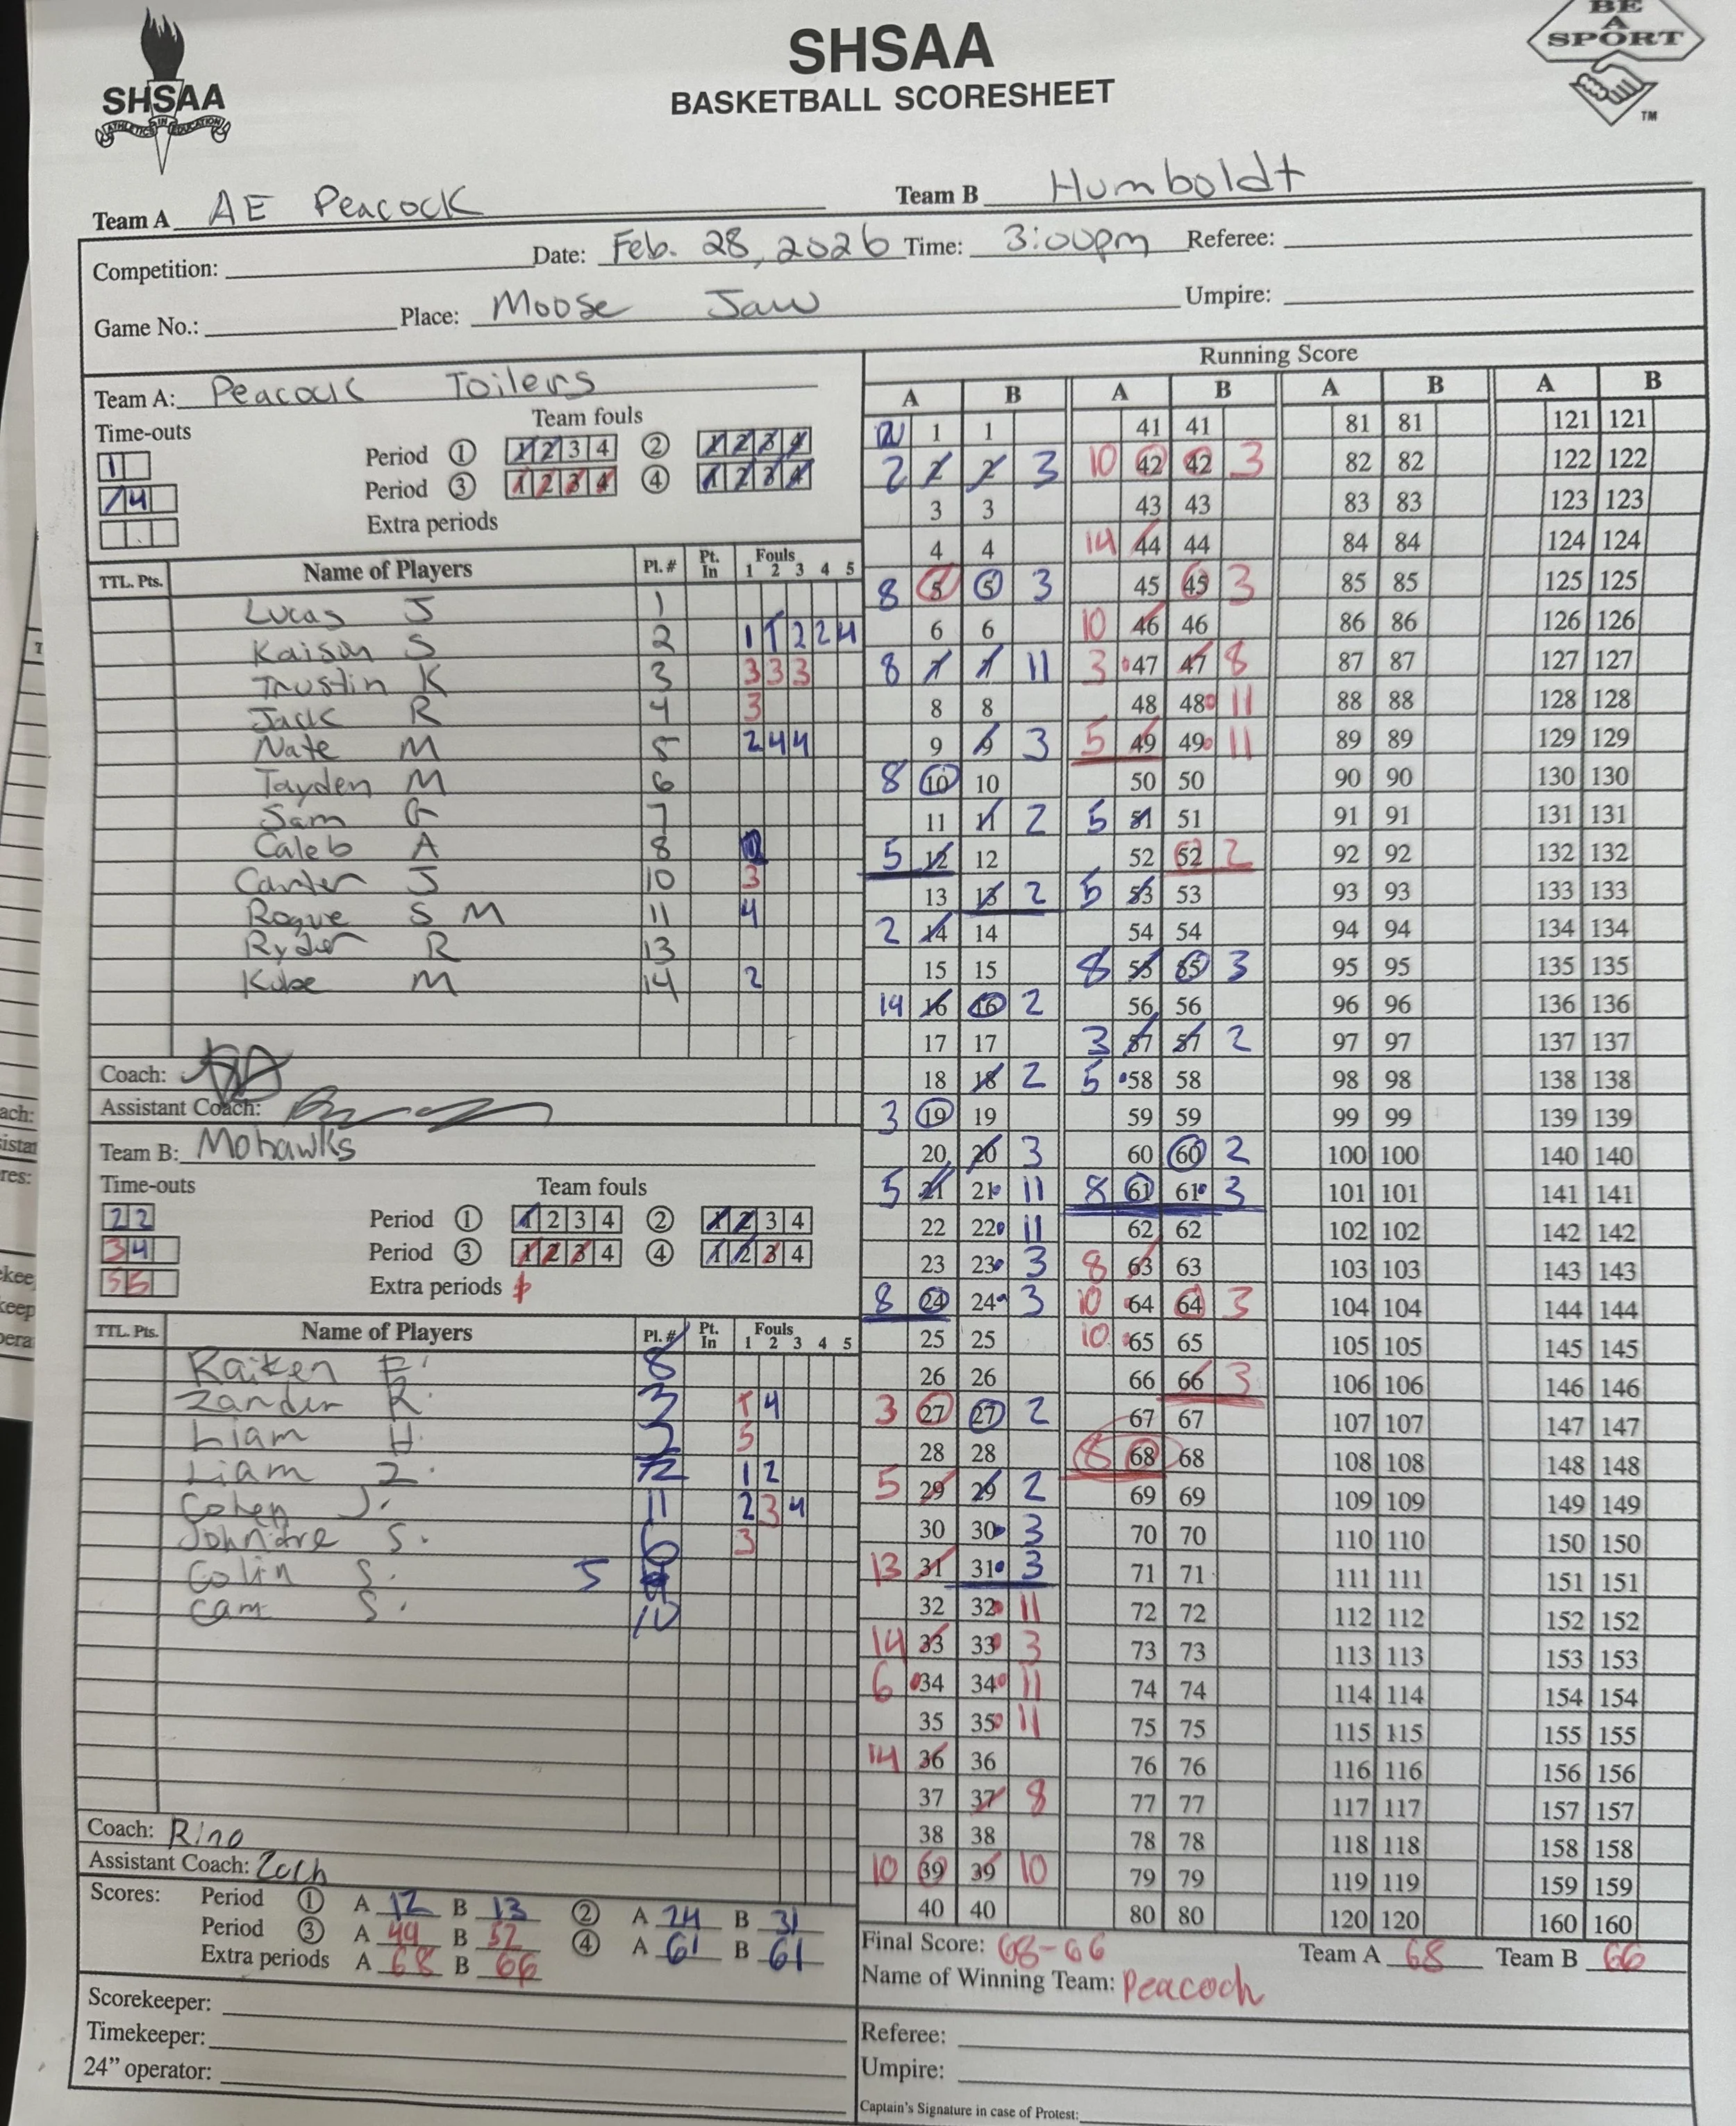 BE
A
SPORT
TM
SHSAA
ATHLETICS IN EDUCATION
SHSAA
BASKETBALL SCORESHEET
Team A AE Peacock
Team B Humboldt
Competition:
Date: Feb. 28, 2026 Time: 3:00pm Referee:
Game No.: Place: Moose Jaw Umpire:
Team A: Peacock Toilers
Time-outs
Team fouls
1
Period 1 1 2 3 4 2 1 2 3 4
/4
Period 3 1 2 3 4 4 1 2 3 4
Extra periods
TTL. Pts. Name of Players Pl. # Pt. In Fouls 1 2 3 4 5
Lucas J 1
Kaison S 2 1 T 2 2 4
Trustin K 3 3 3 3
Jack R 4 3
Nate M 5 2 4 4
Tayden M 6
Sam G 7
Caleb A 8
Carter J 10 3
Rogue S M 11 4
Ryder R 13
Kobe M 14 2
Coach:
Assistant Coach:
Team B: Mohawks
Time-outs
Team fouls
2 2
Period 1 1 2 3 4 2 1 2 3 4
3 4
Period 3 1 2 3 4 4 1 2 3 4
5 5
Extra periods
TTL. Pts. Name of Players Pl. # Pt. In Fouls 1 2 3 4 5
Raiken E. 8
Zander R. 3 T 4
Liam H. 2 5
Liam Z. 12 1 2
Cohen J. 11 2 3 4
Johndre S. 6 3
Colin S. 5
Cam S. 10
Coach: Rino
Assistant Coach: Zach
Scores: Period 1 A 12 B 13 2 A 24 B 31
Period 3 A 49 B 52 4 A 61 B 61
Extra periods A 68 B 66
Scorekeeper:
Timekeeper:
24" operator:
Running Score
A B A B A B A B
1 1 41 41 81 81 121 121
2 2 2 3 10 42 42 3 82 82 122 122
3 3 43 43 83 83 123 123
4 4 14 44 44 84 84 124 124
8 5 5 3 45 45 3 85 85 125 125
6 6 10 46 46 86 86 126 126
8 7 7 11 3 47 47 8 87 87 127 127
8 8 48 48 11 88 88 128 128
9 9 3 5 49 49 11 89 89 129 129
8 10 10 50 50 90 90 130 130
11 11 2 5 51 51 91 91 131 131
5 12 12 52 52 2 92 92 132 132
13 13 2 5 53 53 93 93 133 133
2 14 14 54 54 94 94 134 134
15 15 8 55 55 3 95 95 135 135
14 16 16 2 56 56 96 96 136 136
17 17 3 57 57 2 97 97 137 137
18 18 2 5 58 58 98 98 138 138
3 19 19 59 59 99 99 139 139
20 20 3 60 60 2 100 100 140 140
5 21 21 11 8 61 61 3 101 101 141 141
22 22 11 62 62 102 102 142 142
23 23 3 8 63 63 103 103 143 143
8 24 24 3 10 64 64 3 104 104 144 144
25 25 10 65 65 105 105 145 145
26 26 66 66 3 106 106 146 146
3 27 27 2 67 67 107 107 147 147
28 28 8 68 68 108 108 148 148
5 29 29 2 69 69 109 109 149 149
30 30 3 70 70 110 110 150 150
13 31 31 3 71 71 111 111 151 151
32 32 11 72 72 112 112 152 152
14 33 33 3 73 73 113 113 153 153
6 34 34 11 74 74 114 114 154 154
35 35 11 75 75 115 115 155 155
14 36 36 76 76 116 116 156 156
37 37 8 77 77 117 117 157 157
38 38 78 78 118 118 158 158
10 39 39 10 79 79 119 119 159 159
40 40 80 80 120 120 160 160
Final Score: 68-66 Team A 68 Team B 66
Name of Winning Team: Peacock
Referee:
Umpire:
Captain's Signature in case of Protest: